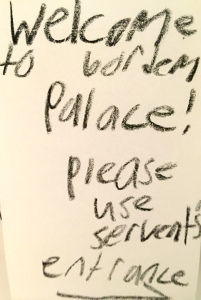 Welcome
to bordem
Palace!
please
use
servent's
entrance